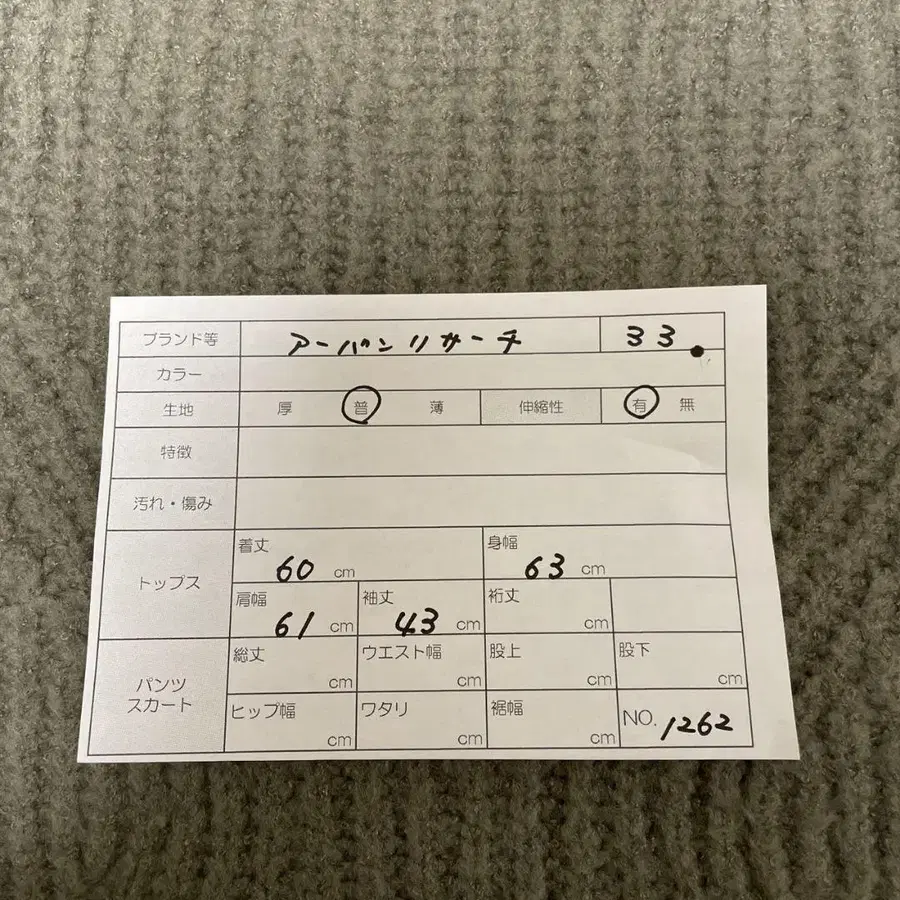 ブランド等 アーバンリサーチ 33.
カラー
生地 厚 普 薄 伸縮性 有 無
特徴
汚れ・傷み
トップス
着丈 60 cm 身幅 63 cm
肩幅 61 cm 袖丈 43 cm 裄丈 cm
パンツ
スカート
総丈 cm ウエスト幅 cm 股上 cm 股下 cm
ヒップ幅 cm ワタリ cm 裾幅 cm NO. 1262